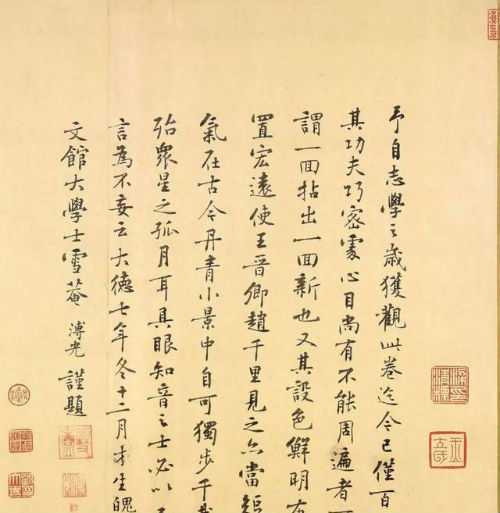 予自志學之歲獲觀此卷迄今已僅百
其功夫巧密處心目尚有不能周遍者
謂一囬拈出一囬新也又其設色鮮明布
置宏遠使王晉卿趙千里見之亦當短
氣在古今丹青小景中自可獨步千載
殆眾星之孤月耳具眼知音之士必以
言為不妄云大德七年冬十二月才生魄
文館大學士雪菴溥光謹題